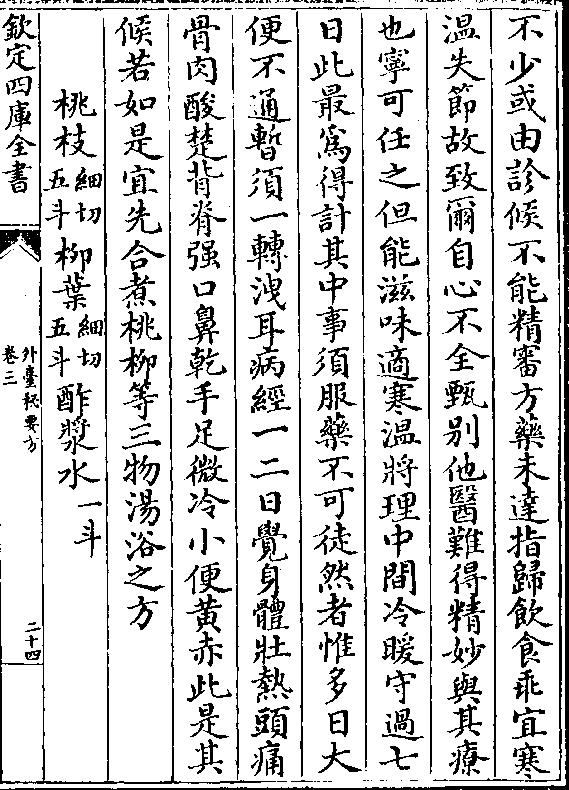 不少或由診候不能精審方藥未達指歸飲食乖宜寒
溫失節故致爾自心不全甄别他醫難得精妙與其療
也寧可任之但能滋味適寒溫將理中間冷暖守過七
日此最為得計其中事須服藥不可徒然者惟多日大
便不通暫須一轉洩耳病經一二日覺身體壯熱頭痛
骨肉酸楚背脊强口鼻乾手足微冷小便黄赤此是其
候若如是宜先合煮桃柳等三物湯浴之方
桃枝細切五斗柳葉細切五斗酢漿水一斗
欽定四庫全書
外臺秘要方
卷三
二十四